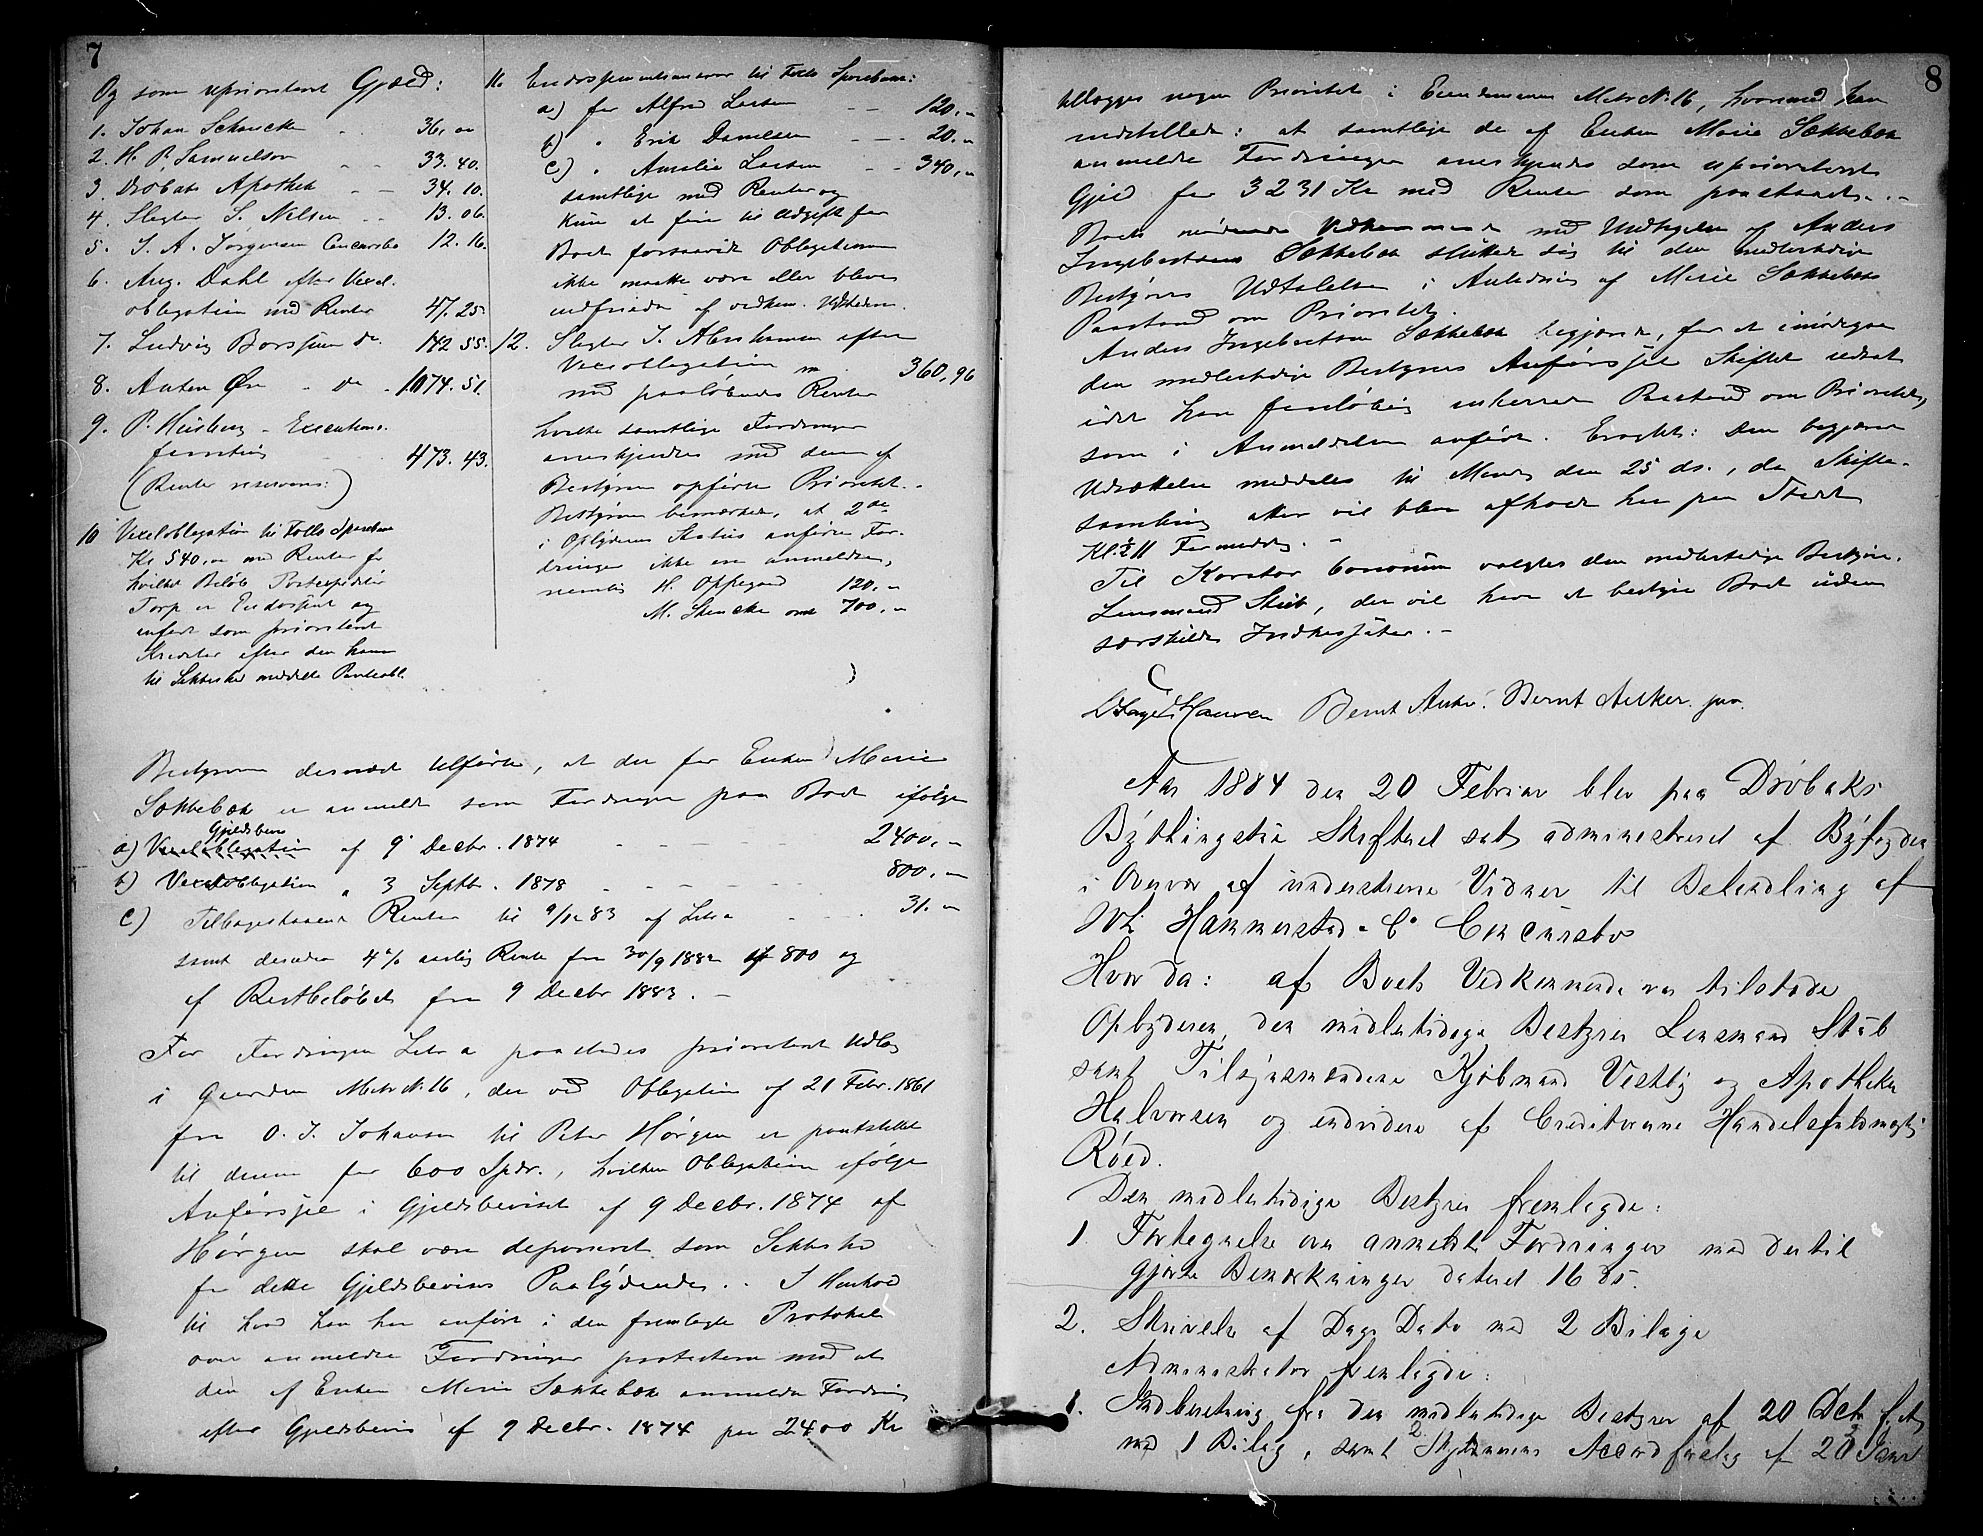 7
Og som uprioriteret Gjæld:
1. Johan Schencke 36.00
2. H. P. Samuelson 33.40.
3. Drøbaks Apothek 34.10.
4. Slagter S. Nilsen 13.06.
5. J. A. Jørgensen Concursbo 12.16.
6. Aug. Dahl efter Vexel-
obligation med Renter 47.25
7. Ludvig Borgsum do. 142.55.
8. Anton Øre - do - 1074.51.
9. P. Husberg - Executions-
473.43.
(Renter reserveres:)
10 Vexelobligation til Follo Sparebank
Kr 540,00 med Renter for
hvilket Beløb Postexpeditør
Torp er Endossent og
anført som prioriteret
Kreditor efter den ham
til Sikkerhed meddelte Panteobl.
11. Endossementsansvar til Follo Sparebank:
a) for Alfred Larsen 120,-
b) " Erik Danielsen 20,-
c) " Amalie Larsen 340,-
samtlige med Renter og
kun at føre til Udgift for
Boet forsaavidt Obligationerne
ikke maatte være eller bleve
indfriede af vedkom. Udstedere.
12. Slagter J. Abrahamsen efter
Vexelobligation 360,96
med paaløbende Renter
hvilke samtlige Fordringer
anerkjendtes med den af
Bestyreren opførte Prioritet.-
Bestyreren bemærkede, at 2de
i Opbyderens Status anførte For-
dringer ikke ere anmeldte,
nemlig H. Oppegaard 120,-
M. Schencke 700,-
Bestyreren dernæst tilførte, at der for Enken Marie
Sækkebæk er anmeldt som Fordringer paa Boet ifølge
Gjeldsbev
a) Vexelobligation af 9 Decbr. 1874 2400,-
b) Vexelobligation " 3 Septb. 1878 800,-
c) Tilbagestaaende Renter til 9/12 83 af Litr a 31.-
samt desuden 4% aarlig Rente fra 30/9 1882 af 800 og
af Restbeløbet fra 9 Decbr 1883.-
For Fordringen Litr a paastodes prioriteret Udlæg
i Gaarden Matr N. 16, der ved Obligation af 21 Febr. 1861
fra O. J. Johansen til Peter Hørgen er pantstillet
til denne for 600 Spdr., hvilken Obligation ifølge
Anførsel i Gjeldsbeviset af 9 Decbr. 1874 af
Hørgen skal være deponeret som Sikkerhed
for dette Gjeldsbevises Paalydende.. I Henhold
til hvad han har anført i den fremlagte Protokol
over anmeldte Fordringer protesterer mod at
den af Enken Marie Sækkebæk anmeldte Fordring
efter Gjeldsbevis af 9 Decbr. 1874 paa 2400 Kr
8
tillægges nogen Prioritet i Eiendommen Matr N. 16, hvorimod han
indstillede: at samtlige de af Enken Marie Sækkebæk
anmeldte Fordringer anerkjendes som uprioriteret
Gjeld for 3231 Kr med Renter som paastaaet.-
Boets Vedkommende med Undtagelse af Anders
Ingebretsen Sækkebæk sluttede sig til den midlertidige
Bestyrers Udtalelse i Anledning af Marie Sækkebæks
Paastand om Prioritet.
Anders Ingebretsen Sækkebæk begjærede, for at imødegaa
den midlertidige Bestyrers Anførsel Skiftet udsat
idet han foreløbig Paastand om Prioritet,
som i Anmeldelsen anført. Eragtet: Den begjærte
Udsættelse meddeles til Mandag den 25 ds., da Skifte-
samling atter vil blive afholdt her paa Stedet
Kl. ½ 11 Formiddag.-
Til Kurator bonorum valgtes den midlertidige Bestyrer,
Lensmand Stub, der vil have at bestyre Boet uden
særskilte Indkasjoner.-
Bernt Anker. Bernt Anker jun.
Aar 1884 den 20 Februar blev paa Drøbaks
Bythingstue Skifteret sat administreret af Byfogden
i Overvær af underskrevne Vidner til Behandling af
Hammerstad & Co Concursbo
Hvorda: af Boets Vedkommende var tilstede
Opbyderen, den midlertidige Bestyrer Lensmand Stub
samt Tilsynsmændene Kjøbmand Vestby og Apotheker
Halvorsen og endvidere af Creditorerne Handelsfuldmægtig
Røed.
Den midlertidige Bestyrer fremlagde:
1 Fortegnelse over anmeldte Fordringer med dertil
gjorte Bemærkninger dateret 16 ds.
2. Skrivelse af Dags Dato med 2 Bilage
Administrator fremlagde:
1. Indberetning fra den midlertidige Bestyrer af 20 Decbr f. A.
med 1 Bilag, samt 2 Skyldnerens Accordforslag af 20 Januar